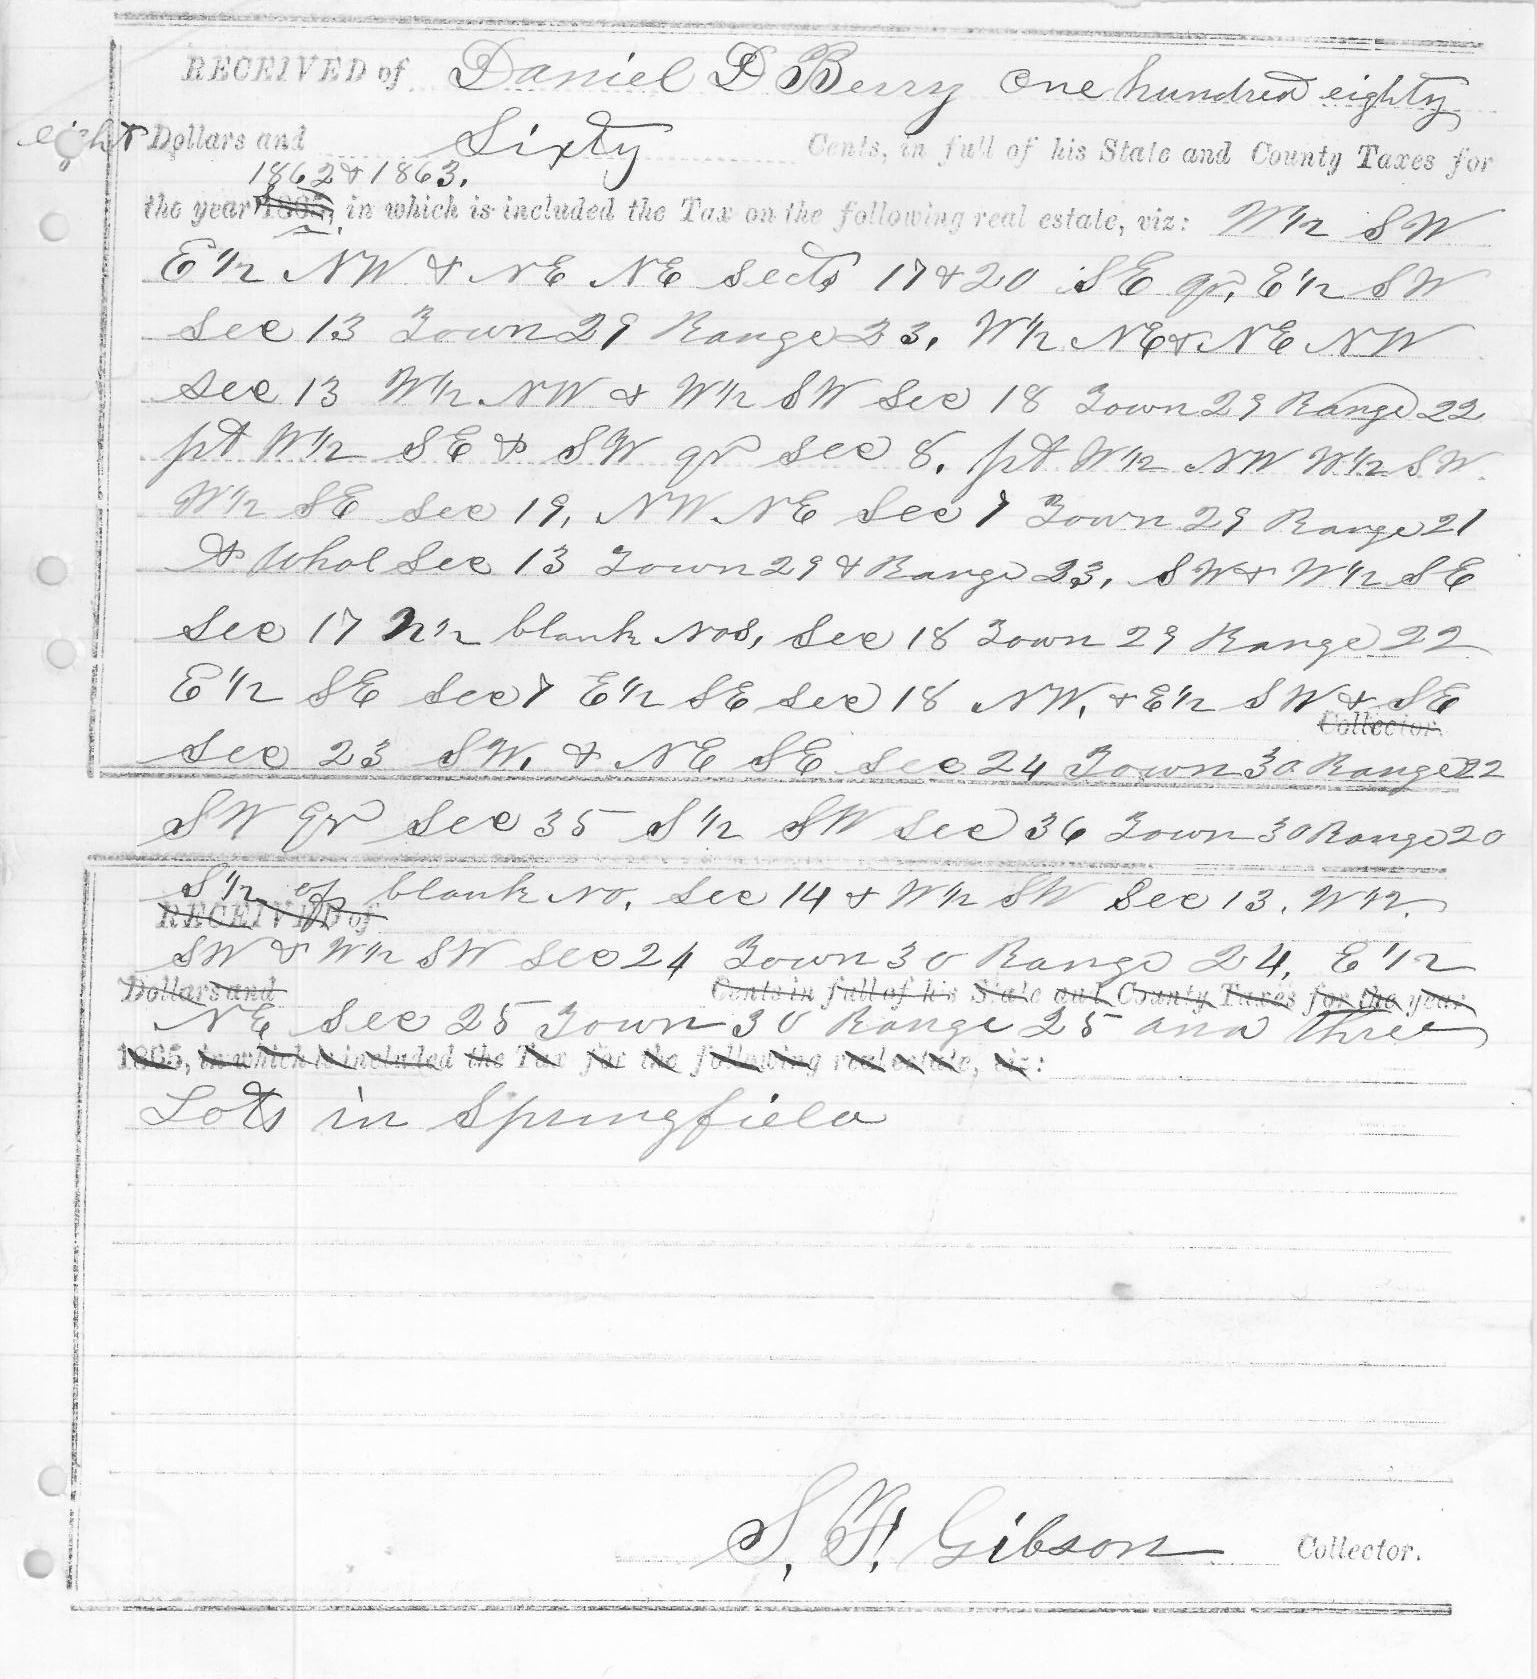 RECEIVED of Daniel D Berry One hundred eighty
eight Dollars and Sixty Cents, in full of his State and County Taxes for
1862 & 1863.
the year 1865, in which is included the Tax on the following real estate, viz: W 1/2 SW
E 1/2 NW & NE NE Sects 17 & 20 SE qr, E 1/2 SW
Sec 13 Town 29 Range 23, W 1/2 NE & NE NW
Sec 13 W 1/2 NW & W 1/2 SW Sec 18 Town 29 Range 22
pt W 1/2 SE & SW qr Sec 8, pt W 1/2 NW W 1/2 SW
W 1/2 SE Sec 19, NW NE Sec 7 Town 29 Range 21
& Whol Sec 13 Town 29 & Range 23, SW & W 1/2 SE
Sec 17 N 1/2 blank Nos, Sec 18 Town 29 Range 22
E 1/2 SE Sec 7 E 1/2 SE Sec 18 NW, & E 1/2 SW & SE
Collector.
Sec 23 SW, & NE SE Sec 24 Town 30 Range 22
SW qr Sec 35 S 1/2 SW Sec 36 Town 30 Range 20
S 1/2 of blank No, Sec 14 & W 1/2 SW Sec 13, W 1/2
RECEIVED of
SW & W 1/2 SW Sec 24 Town 30 Range 24, E 1/2
Dollars and Cents in full of his State and County Taxes for the year
NE Sec 25 Town 30 Range 25 and three
1865, in which is included the Tax for the following real estate, viz:
Lots in Springfield
S. F. Gibson Collector.